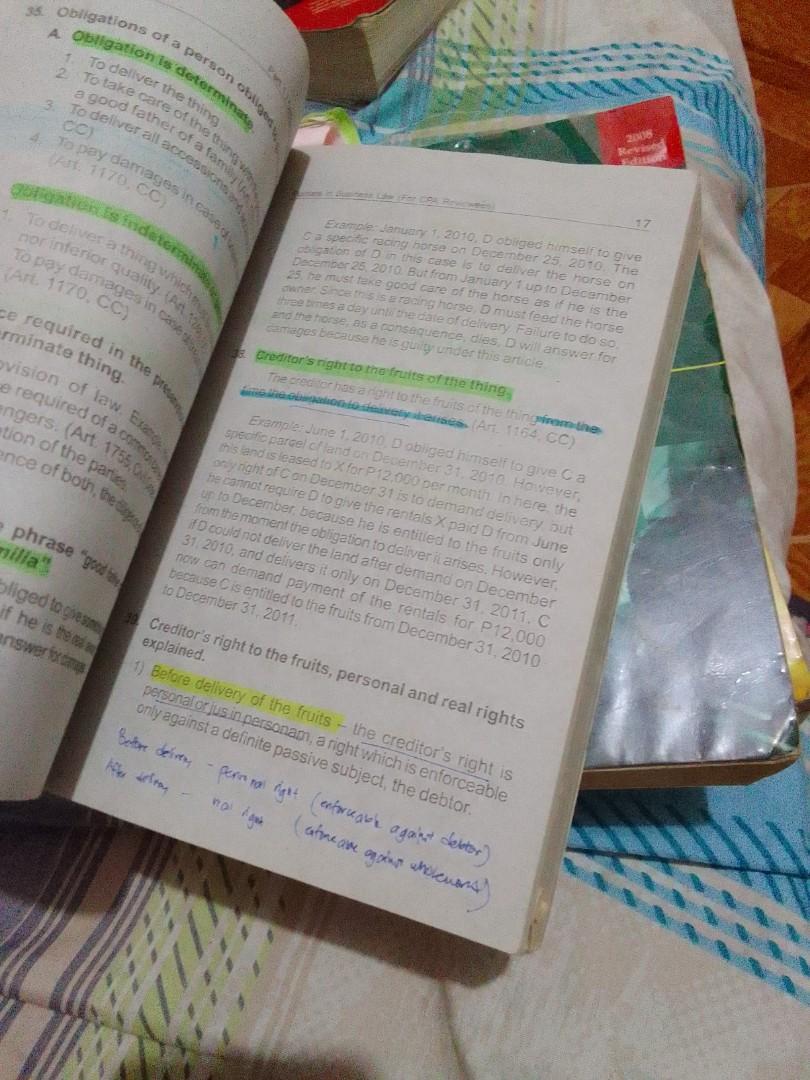 35. Obligations of a person obliged
A. Obligation is determinate
1. To deliver the thing
2. To take care of the thing with
a good father of a family (Art.
3. To deliver all accessions and
CC)
4. To pay damages in case of
(Art. 1170, CC)
Obligation is indeterminate
1. To deliver a thing which
nor inferior quality. (Art.
To pay damages in case
(Art. 1170, CC)
ce required in the
erminate thing.
ovision of law. Example
e required of a common
engers. (Art. 1755,
ation of the parties.
ence of both, the
phrase "good
milia"
bliged to give
if he is the real
answer for damages
2008
Revised
Edition
in Business Law (For CPA Reviewees)
17
Example: January 1, 2010, D obliged himself to give
C a specific racing horse on December 25, 2010. The
obligation of D in this case is to deliver the horse on
December 25, 2010. But from January 1 up to December
25, he must take good care of the horse as if he is the
owner. Since this is a racing horse, D must feed the horse
three times a day until the date of delivery. Failure to do so,
and the horse, as a consequence, dies, D will answer for
damages because he is guilty under this article.
38. Creditor's right to the fruits of the thing.
The creditor has a right to the fruits of the thing from the
time the obligation to delivery it arises. (Art. 1164, CC)
Example: June 1, 2010, D obliged himself to give C a
specific parcel of land on December 31, 2010. However,
this land is leased to X for P12,000 per month. In here, the
only right of C on December 31 is to demand delivery, but
he cannot require D to give the rentals X paid D from June
up to December, because he is entitled to the fruits only
from the moment the obligation to deliver it arises. However,
if D could not deliver the land after demand on December
31, 2010, and delivers it only on December 31, 2011, C
now can demand payment of the rentals for P12,000
because C is entitled to the fruits from December 31, 2010
to December 31, 2011.
39. Creditor's right to the fruits, personal and real rights
explained.
1) Before delivery of the fruits – the creditor's right is
personal or jus in personam, a right which is enforceable
only against a definite passive subject, the debtor.
Before delivery - personal right (enforceable against debtor)
After delivery - real right (enforceable against whole world)